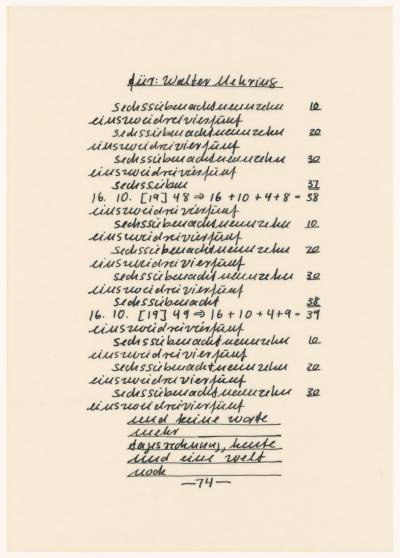 für: Walter Mehring
sechssiebenachtneunzehn 10
einszweidreivierfünf
sechssiebenachtneunzehn 20
einszweidreivierfünf
sechssiebenachtneunzehn 30
einszweidreivierfünf
sechssieben 37
16. 10. [19] 48 ⇒ 16 + 10 + 4 + 8 = 38
einszweidreivierfünf
sechssiebenachtneunzehn 10
einszweidreivierfünf
sechssiebenachtneunzehn 20
einszweidreivierfünf
sechssiebenachtneunzehn 30
einszweidreivierfünf
sechssiebenacht 38
16. 10. [19] 49 ⇒ 16 + 10 + 4 + 9 = 39
einszweidreivierfünf
sechssiebenachtneunzehn 10
einszweidreivierfünf
sechssiebenachtneunzehn 20
einszweidreivierfünf
sechssiebenachtneunzehn 30
einszweidreivierfünf
und keine worte
mehr
tagesrechnung, heute
und eine welt
noch
—74—